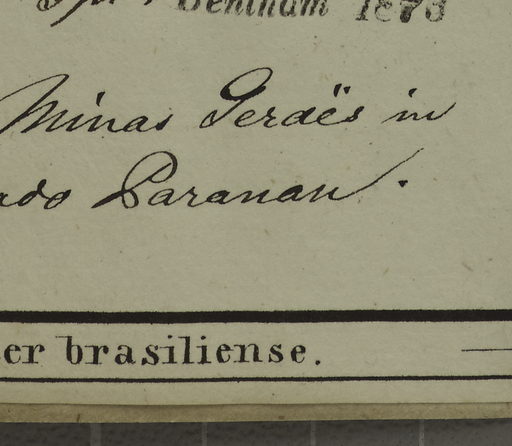 Bentham 1873
Minas Geraës in
ado Paranan.
er brasiliense.